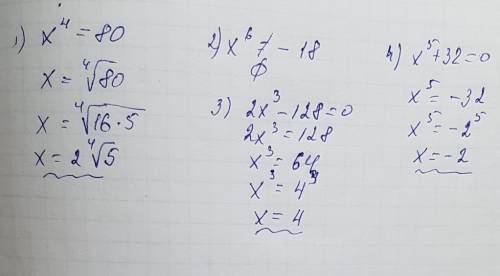 1) x⁴ = 80
x = ⁴√80
x = ⁴√16·5
x = 2 ⁴√5
2) x⁶ ≠ -18
∅
3) 2x³ - 128 = 0
2x³ = 128
x³ = 64
x³ = 4³
x = 4
4) x⁵ + 32 = 0
x⁵ = -32
x⁵ = -2⁵
x = -2